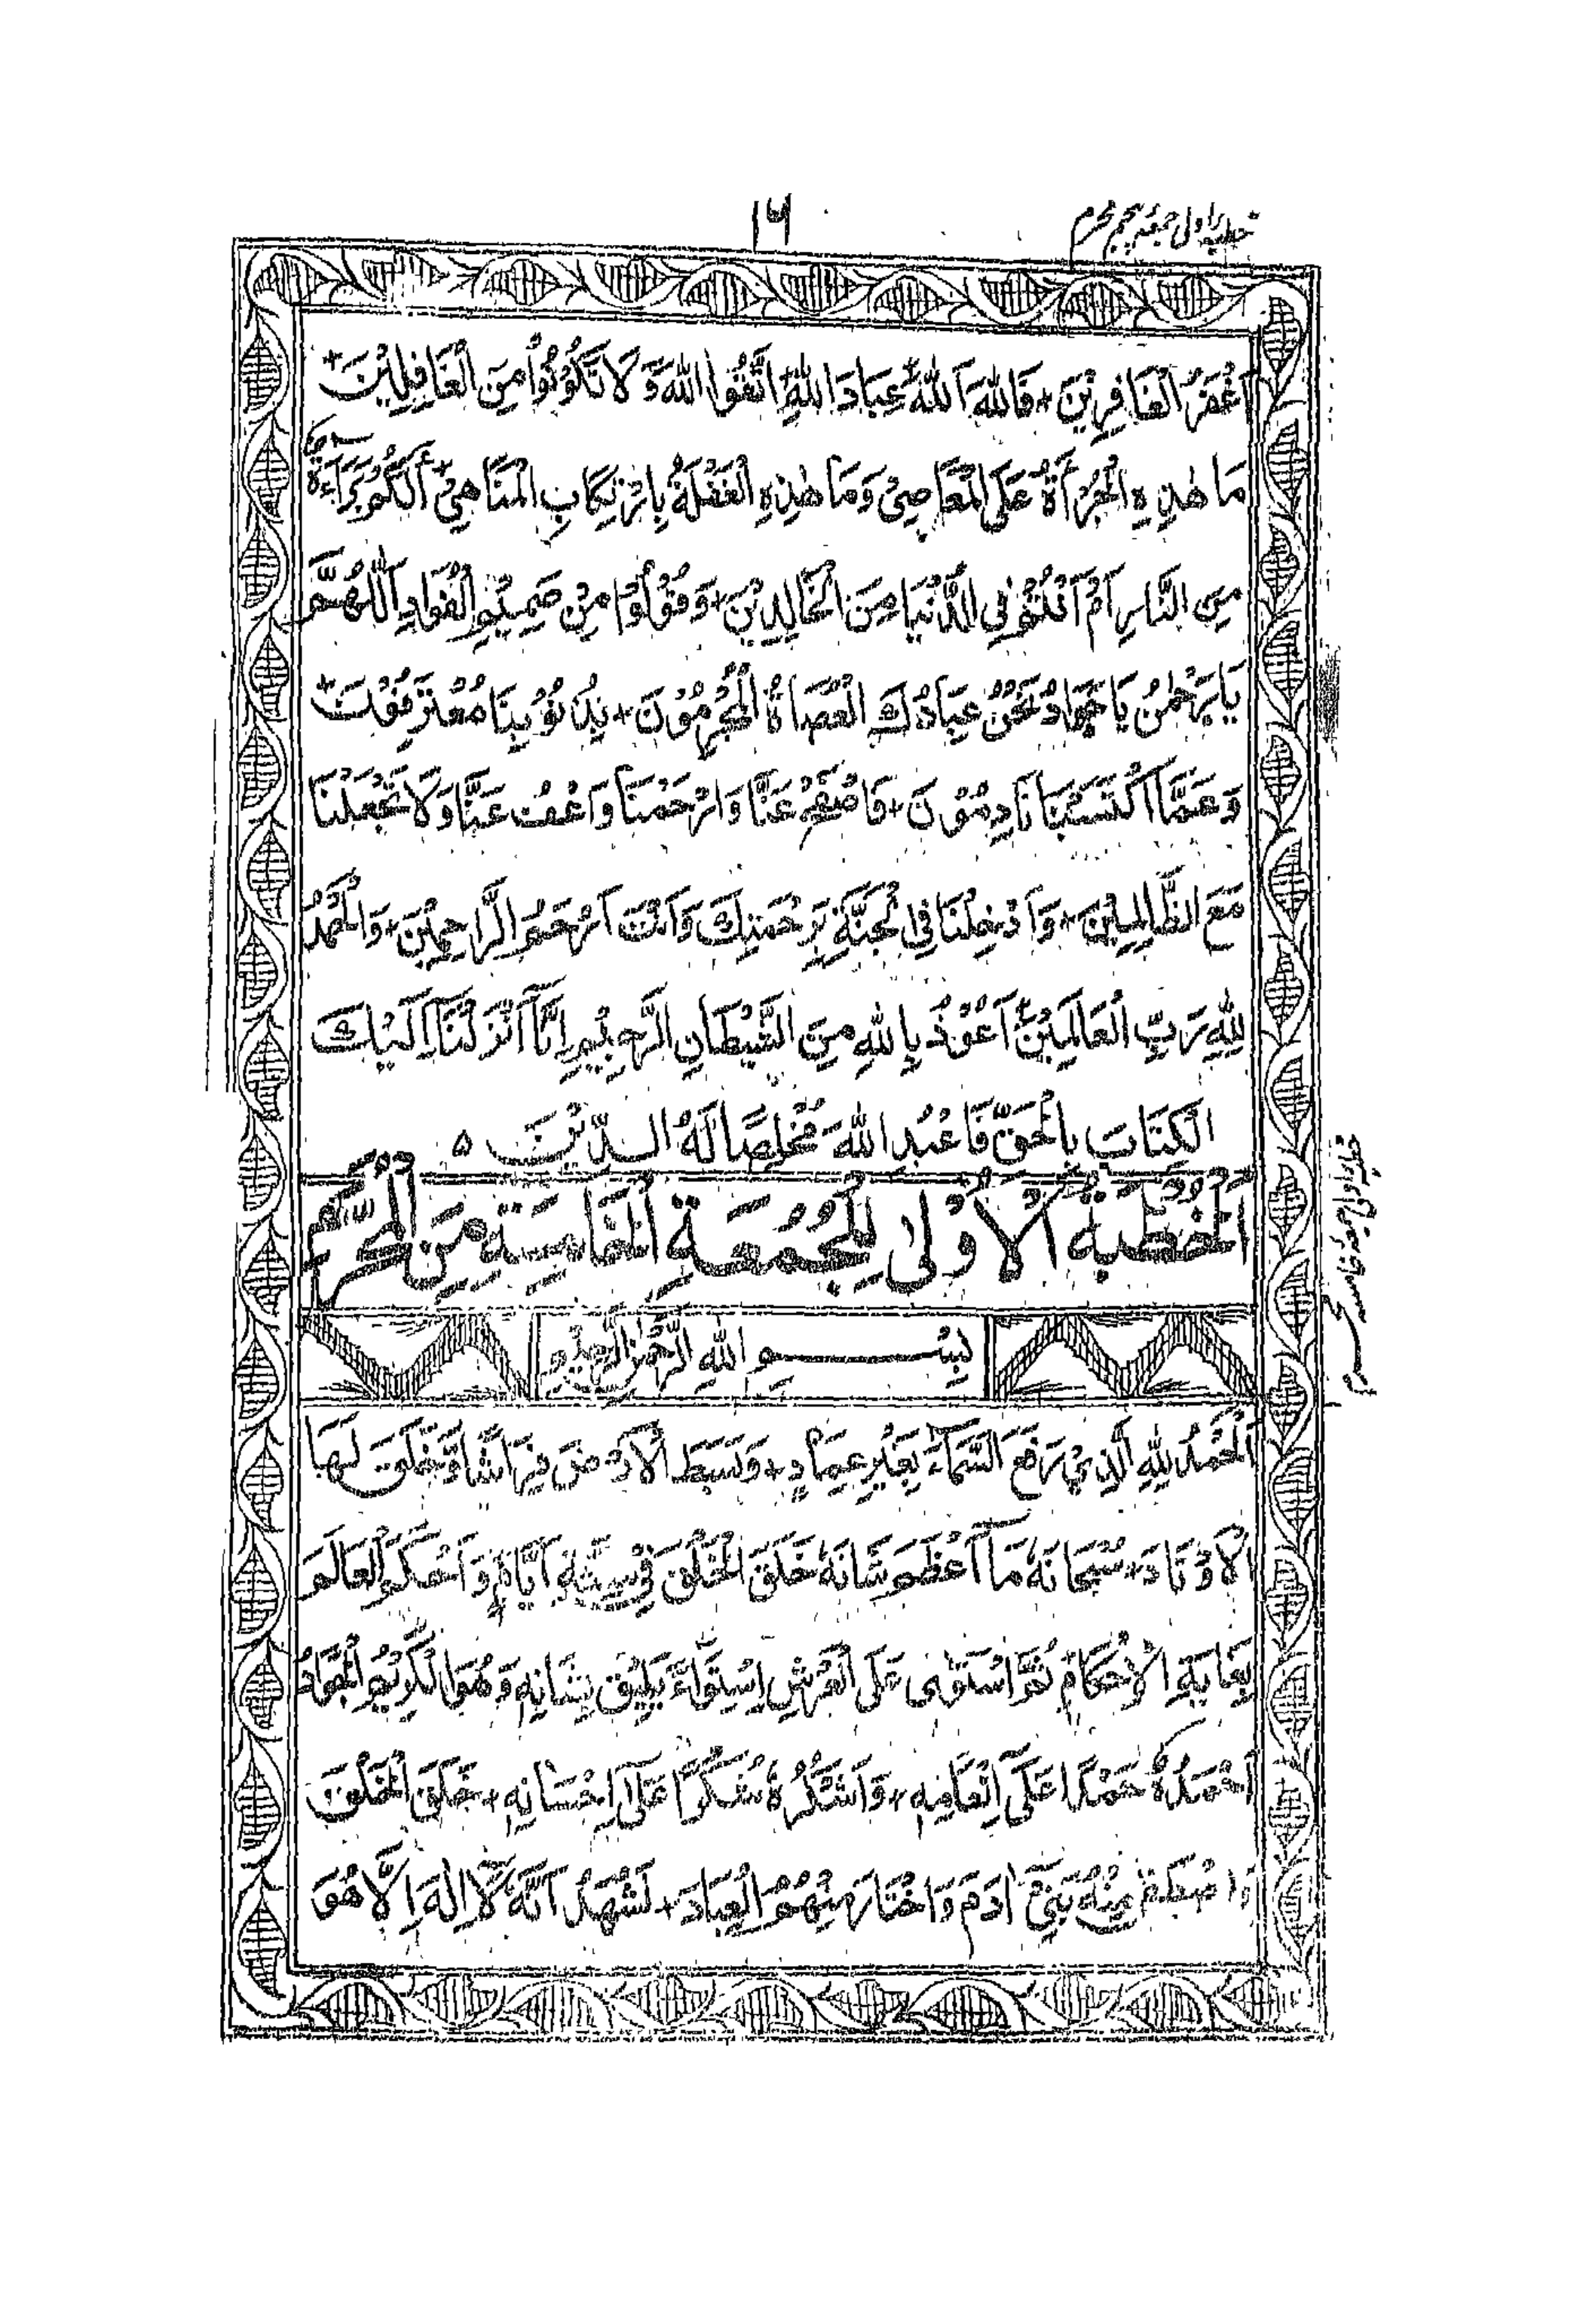 ۱۶
خطبہ اول جمعہ پنجم محرم
اَغْفَرُ الْغَافِرِيْنَ + فَاللهَ اَللهَ عِبَادَ اللهِ اتَّقُوا اللهَ وَلَا تَكُوْنُوْا مِنَ الْغَافِلِيْنَ +
مَا هٰذِهِ الْجُرْأَةُ عَلَى الْمَعَاصِيْ وَمَا هٰذِهِ الْغَفْلَةُ بِارْتِكَابِ الْمَنَاهِيْ + أَلَكُمْ بَرَاءَةٌ
مِنَ النَّارِ اَمْ اَنْتُمْ فِي الدُّنْيَا مِنَ الْخَالِدِيْنَ + وَقُوْلُوْا مِنْ صَمِيْمِ الْفُوَادِ اَللّٰهُمَّ
يَا رَحْمٰنُ يَا جَوَادُ نَحْنُ عِبَادُكَ الْعُصَاةُ الْمُجْرِمُوْنَ + بِذُنُوْبِنَا مُعْتَرِفُوْنَ +
وَعَمَّا اكْتَسَبْنَا نَادِمُوْنَ + فَاصْفَحْ عَنَّا وَارْحَمْنَا وَاعْفُ عَنَّا وَلَا تَجْعَلْنَا
مَعَ الظَّالِمِيْنَ + وَاَدْخِلْنَا فِي الْجَنَّةِ بِرَحْمَتِكَ وَاَنْتَ اَرْحَمُ الرَّاحِمِيْنَ + وَالْحَمْدُ
لِلّٰهِ رَبِّ الْعَالَمِيْنَ + اَعُوْذُ بِاللهِ مِنَ الشَّيْطَانِ الرَّجِيْمِ اِنَّا اَنْزَلْنَا اِلَيْكَ
الْكِتَابَ بِالْحَقِّ فَاعْبُدِ اللهَ مُخْلِصًا لَهُ الدِّيْنَ ٥
اَلْخُطْبَةُ الْاُوْلٰى لِلْجُمُعَةِ الْخَامِسَةِ مِنَ الْمُحَرَّمِ
بِسْمِ اللهِ الرَّحْمٰنِ الرَّحِيْمِ
اَلْحَمْدُ لِلّٰهِ الَّذِيْ رَفَعَ السَّمَاءَ بِغَيْرِ عِمَادٍ + وَبَسَطَ الْاَرْضَ فِرَاشًا وَّخَلَقَ لَهَا
الْاَوْتَادَ + سُبْحَانَهٗ مَا اَعْظَمَ شَانَهٗ خَلَقَ الْخَلْقَ فِيْ سِتَّةِ اَيَّامٍ وَاَحْكَمَ الْعَالَمَ
بِغَايَةِ الْاِحْكَامِ ثُمَّ اسْتَوٰى عَلَى الْعَرْشِ اِسْتِوَاءً يَلِيْقُ بِشَانِهٖ وَهُوَ الْكَرِيْمُ الْجَوَادُ
اَحْمَدُهٗ حَمْدًا عَلٰى اِنْعَامِهٖ + وَاَشْكُرُهٗ شُكْرًا عَلٰى اِحْسَانِهٖ + خَلَقَ الْخَلْقَ
وَاصْطَفٰى مِنْهُ بَنِيْ اٰدَمَ وَاخْتَارَ مِنْهُمُ الْعِبَادَ + نَشْهَدُ اَنَّهٗ لَا اِلٰهَ اِلَّا هُوَ